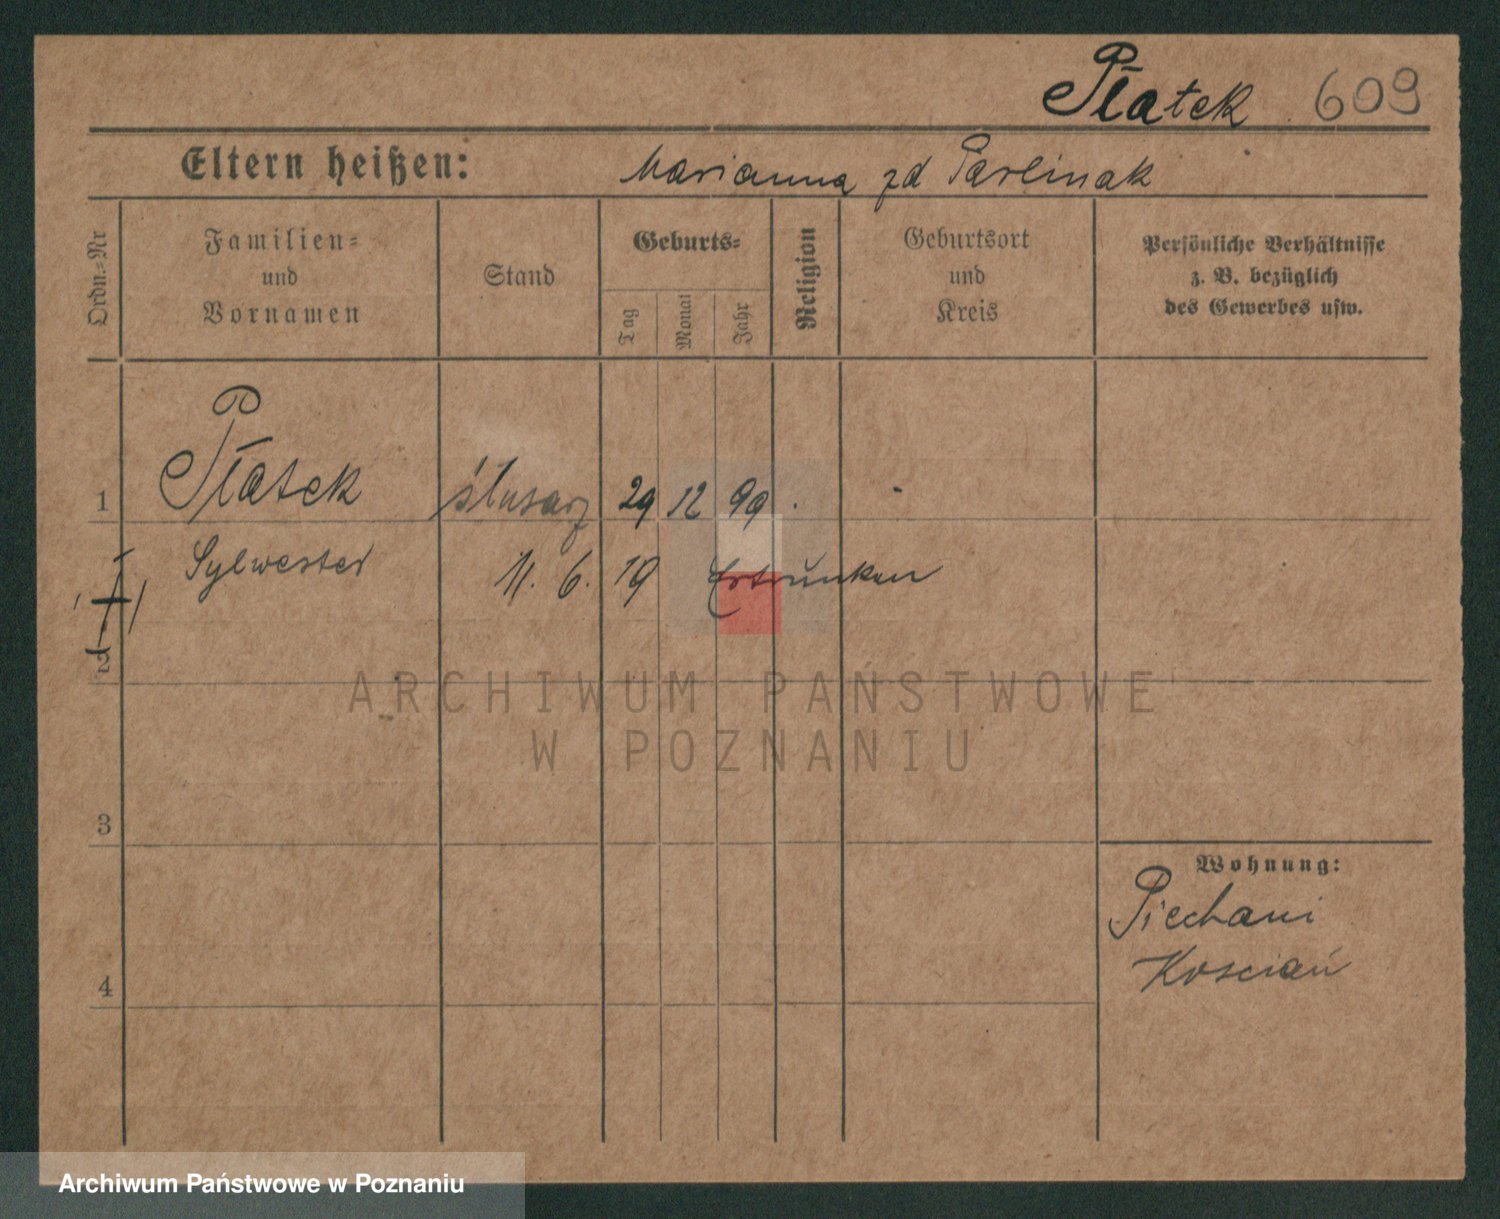 Płatek 609
Eltern heißen: Marianna zd Parlinak
Ordn.-Nr
Familien-
und
Vornamen
Stand
Geburts-
Tag
Monat
Jahr
Religion
Geburtsort
und
Kreis
Persönliche Verhältnisse
z. B. bezüglich
des Gewerbes usw.
1 Płatek ślusarz 29 12 99
Sylwester 11. 6. 19 Ertrunken
2
3
4
Wohnung:
Piechani
Koscian
ARCHIWUM PAŃSTWOWE
W POZNANIU
Archiwum Państwowe w Poznaniu